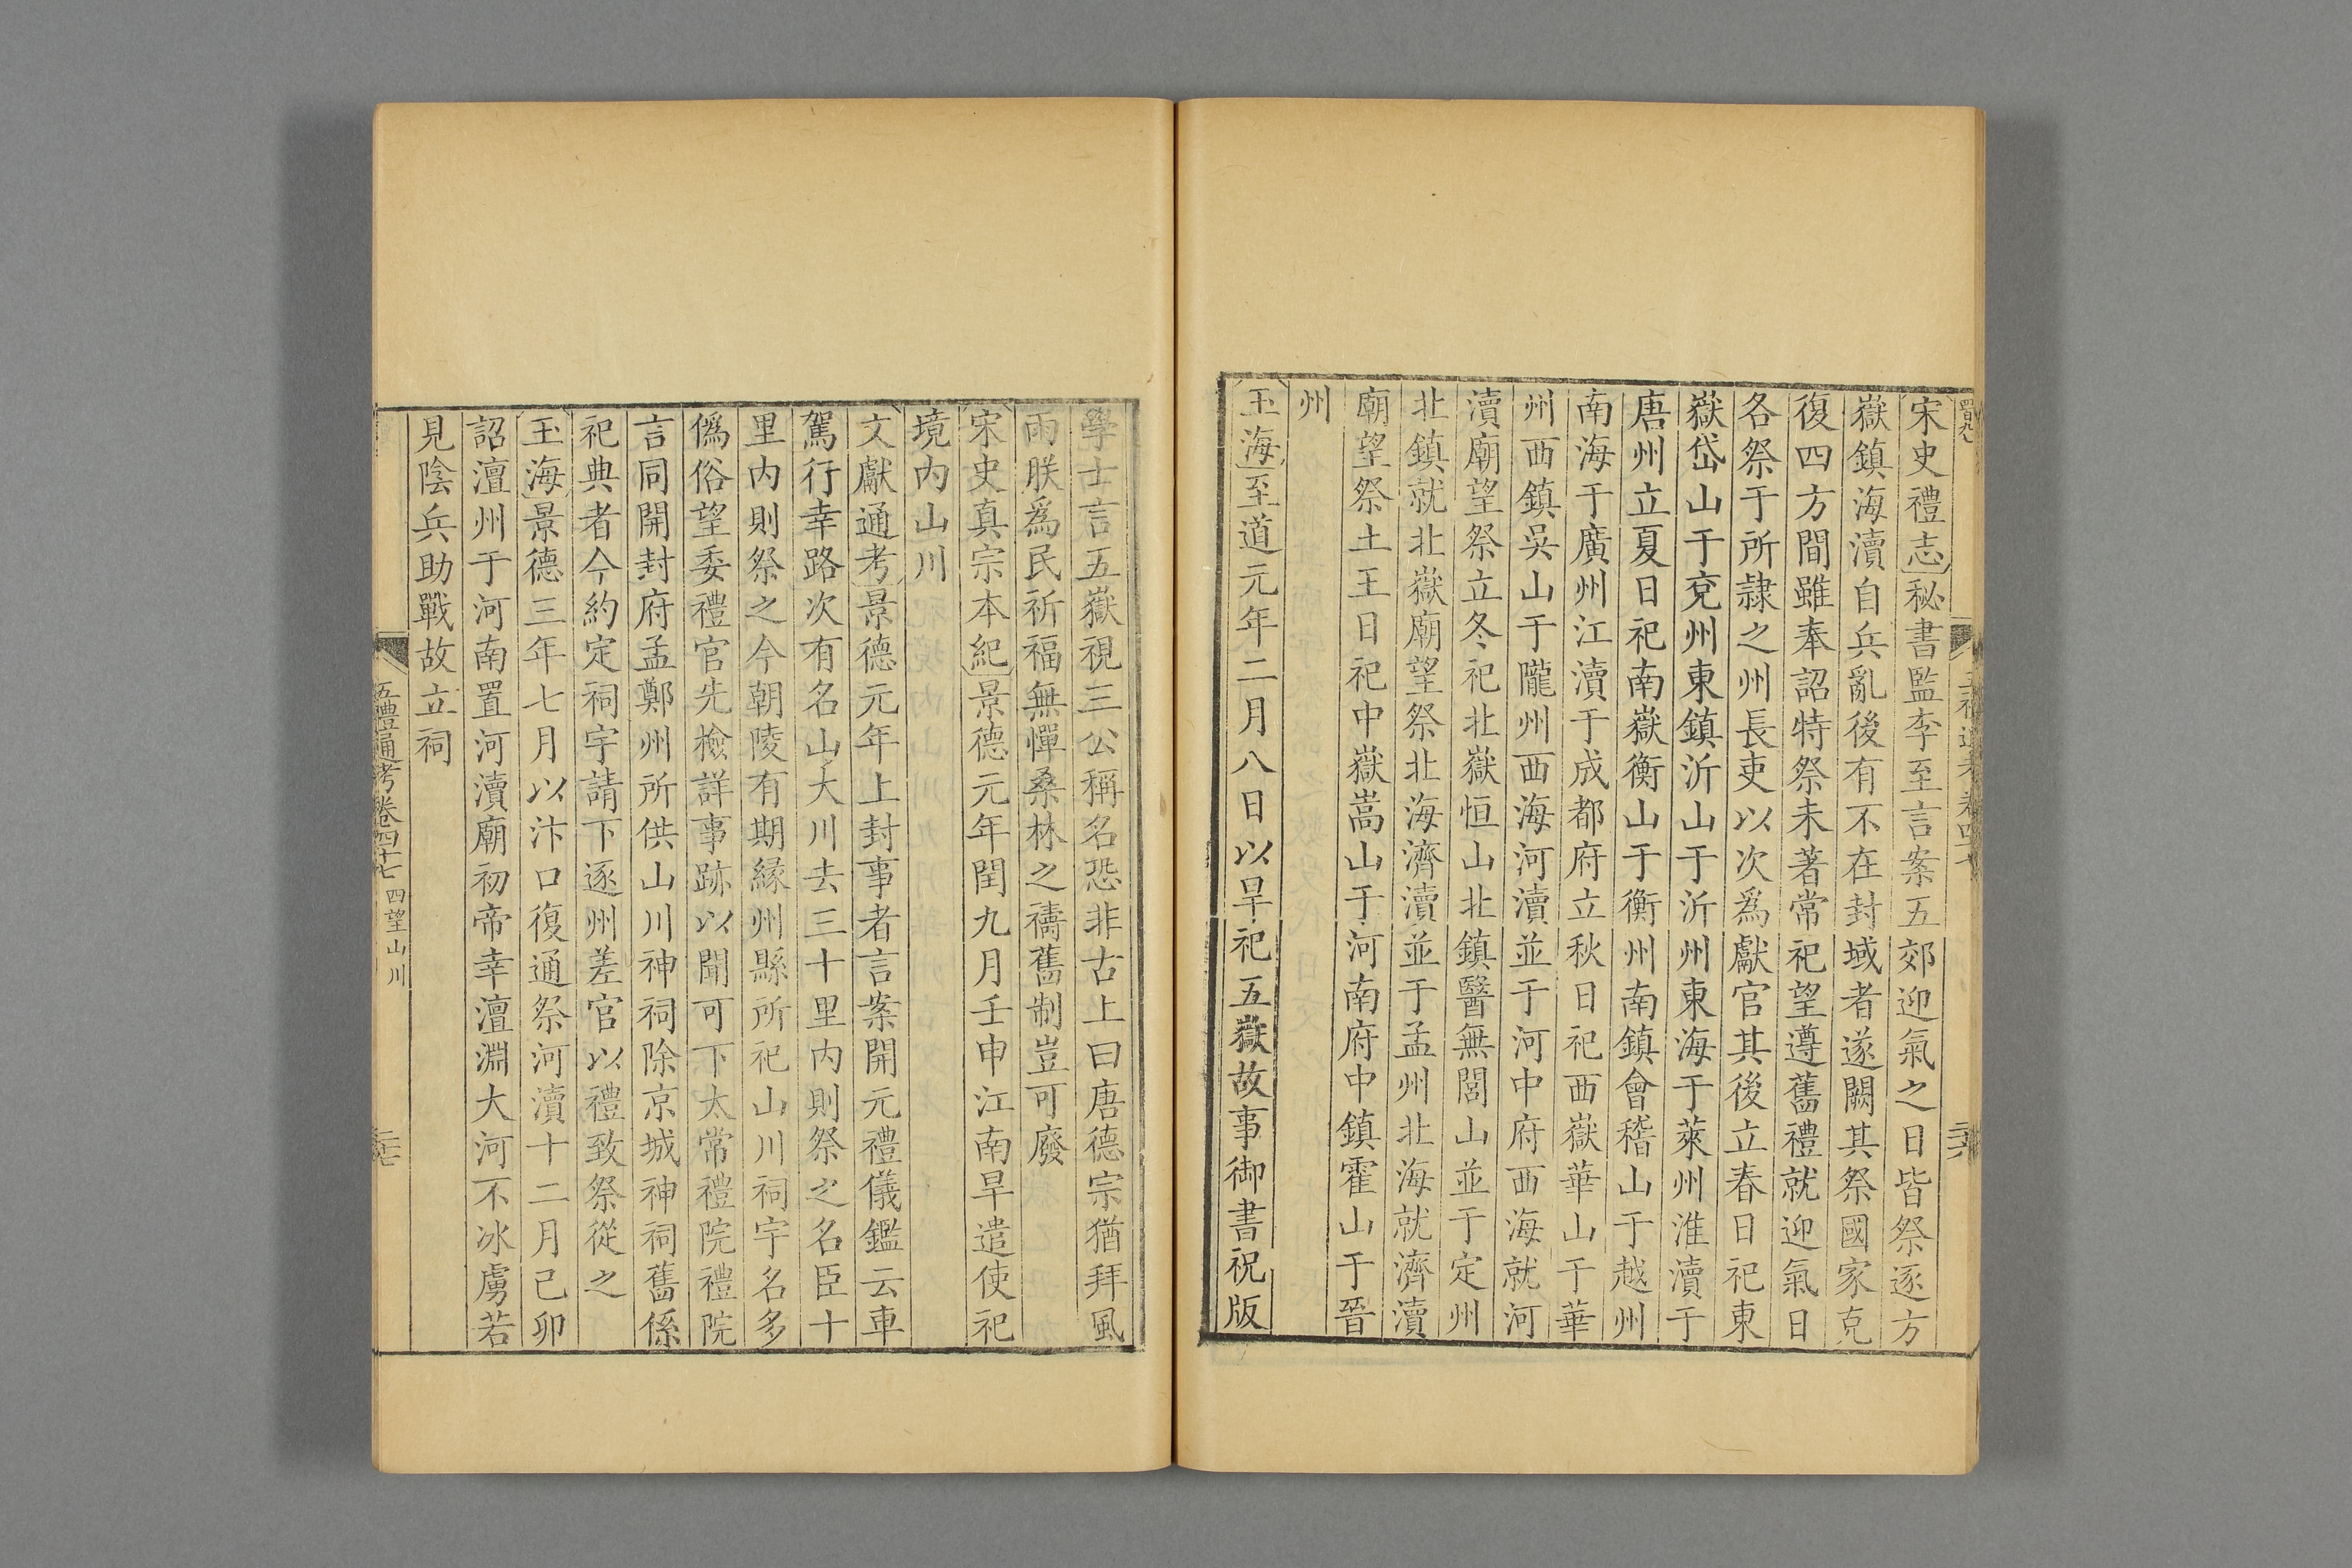 宋史禮志秘書監李至言案五郊迎氣之日皆祭逐方
嶽鎮海瀆自兵亂後有不在封域者遂闕其祭國家克
復四方間雖奉詔特祭未著常祀望遵舊禮就迎氣日
各祭于所隷之州長吏以次爲獻官其後立春日祀東
嶽岱山于兗州東鎮沂山于沂州東海于萊州淮瀆于
唐州立夏日祀南嶽衡山于衡州南鎮會稽山于越州
南海于廣州江瀆于成都府立秋日祀西嶽華山于華
州西鎮吳山于隴州西海河瀆並于河中府西海就河
瀆廟望祭立冬祀北嶽恒山北鎮醫無閭山並于定州
北鎮就北嶽廟望祭北海濟瀆並于孟州北海就濟瀆
廟望祭土王日祀中嶽嵩山于河南府中鎮霍山于晉
州
玉海至道元年二月八日以旱祀五嶽故事御書祝版
學士言五嶽視三公稱名恐非古上曰唐德宗猶拜風
雨朕爲民祈福無憚桑林之禱舊制豈可廢
宋史真宗本紀景德元年閏九月壬申江南旱遣使祀
境內山川
文獻通考景德元年上封事者言案開元禮儀鑑云車
駕行幸路次有名山大川去三十里內則祭之名臣十
里內則祭之今朝陵有期緣州縣所祀山川祠宇名多
僞俗望委禮官先檢詳事跡以聞可下太常禮院禮院
言同開封府孟鄭州所供山川神祠除京城神祠舊係
祀典者今約定祠宇請下逐州差官以禮致祭從之
玉海景德三年七月以汴口復通祭河瀆十二月己卯
詔澶州于河南置河瀆廟初帝幸澶淵大河不冰虜若
見陰兵助戰故立祠
五禮通考卷四十七 四望山川
二十七